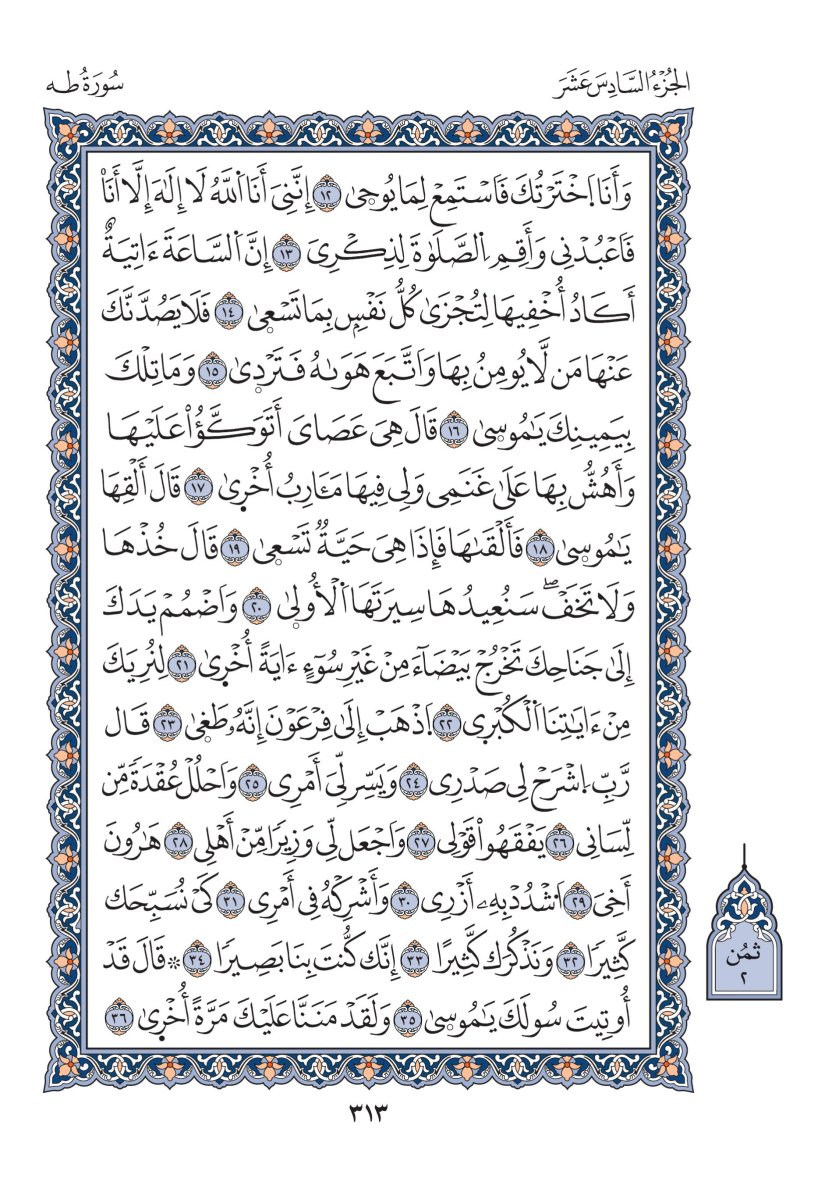 الجُزْءُ السَّادِسَ عَشَرَ
سُورَةُ طه
وَأَنَا اَ۪خْتَرْتُكَ فَاسْتَمِعْ لِمَا يُوح۪يٰ ١٢ إِنَّنِيَ أَنَا اَ۬للَّهُ لَا إِلَٰهَ إِلَّا أَنَا۠
فَاعْبُدْنِي وَأَقِمِ اِ۬لصَّلَوٰةَ لِذِكْرِيَ ١٣ إِنَّ اَ۬لسَّاعَةَ ءَاتِيَةٌ
أَكَادُ أُخْفِيهَا لِتُجْزَىٰ كُلُّ نَفْسِۭ بِمَا تَسْع۪يٰ ١٤ فَلَا يَصُدَّنَّكَ
عَنْهَا مَن لَّا يُومِنُ بِهَا وَاتَّبَعَ هَوَىٰهُ فَتَرْد۪يٰ ١٥ وَمَا تِلْكَ
بِيَمِينِكَ يَٰمُوس۪يٰ ١٦ قَالَ هِيَ عَصَايَ أَتَوَكَّؤُاْ عَلَيْهَا
وَأَهُشُّ بِهَا عَلَىٰ غَنَمِي وَلِي فِيهَا مَـَٔارِبُ أُخْر۪يٰ ١٧ قَالَ أَلْقِهَا
يَٰمُوس۪يٰ ١٨ فَأَلْقَىٰهَا فَإِذَا هِيَ حَيَّةٞ تَسْع۪يٰ ١٩ قَالَ خُذْهَا
وَلَا تَخَفْۖ سَنُعِيدُهَا سِيرَتَهَا اَ۬لْأُول۪يٰ ٢٠ وَاضْمُمْ يَدَكَ
إِلَىٰ جَنَاحِكَ تَخْرُجْ بَيْضَآءَ مِنْ غَيْرِ سُوٓءٍ ءَايَةً أُخْر۪يٰ ٢١ لِنُرِيَكَ
مِنْ ءَايَٰتِنَا اَ۬لْكُبْر۪ي ٢٢ اَ۪ذْهَبْ إِلَىٰ فِرْعَوْنَ إِنَّهُۥ طَغ۪يٰ ٢٣ قَال
رَّبِّ اِ۪شْرَحْ لِي صَدْرِي ٢٤ وَيَسِّر لِّيَ أَمْرِي ٢٥ وَاحْلُلْ عُقْدَةٗ مِّن
لِّسَانِي ٢٦ يَفْقَهُواْ قَوْلِي ٢٧ وَاجْعَل لِّي وَزِيرٗا مِّنْ أَهْلِي ٢٨ هَٰرُونَ
أَخِيَ ٢٩ اَ۟شْدُدْ بِهِۦ أَزْرِي ٣٠ وَأَشْرِكْهُ فِي أَمْرِي ٣١ كَيْ نُسَبِّحَك
كَّثِيرٗا ٣٢ وَنَذْكُرَك كَّثِيرًا ٣٣ إِنَّك كُّنتَ بِنَا بَصِيرٗا ٣٤ ۞ قَالَ قَدْ
أُوتِيتَ سُولَكَ يَٰمُوس۪يٰ ٣٥ وَلَقَدْ مَنَنَّا عَلَيْكَ مَرَّةً أُخْر۪يٰ ٣٦
ثُمُن
٢
٣١٣